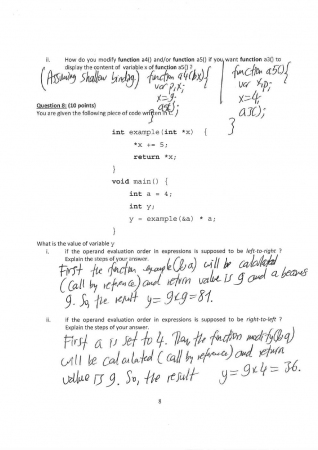 ii. How do you modify function a4() and/or function a5() if you want function a3() to
display the content of variable x of function a5() ?
(Assuming shallow binding) function a4(bx){
var p,x;
x=3;
a5();
}
function a5(){
var x,p;
x=4;
a3();
}
Question 8: (10 points)
You are given the following piece of code written in C:
int example(int *x) {
*x += 5;
return *x;
}
void main() {
int a = 4;
int y;
y = example(&a) * a;
}
What is the value of variable y
i. If the operand evaluation order in expressions is supposed to be left-to-right ?
Explain the steps of your answer.
First the function example(&a) will be calculated
(call by reference) and return value is 9 and a becomes
9. So, the result y = 9×9=81.
ii. If the operand evaluation order in expressions is supposed to be right-to-left ?
Explain the steps of your answer.
First a is set to 4. Then the function modify(&a)
will be calculated (call by reference) and return
value is 9. So, the result y = 9×4 = 36.
8